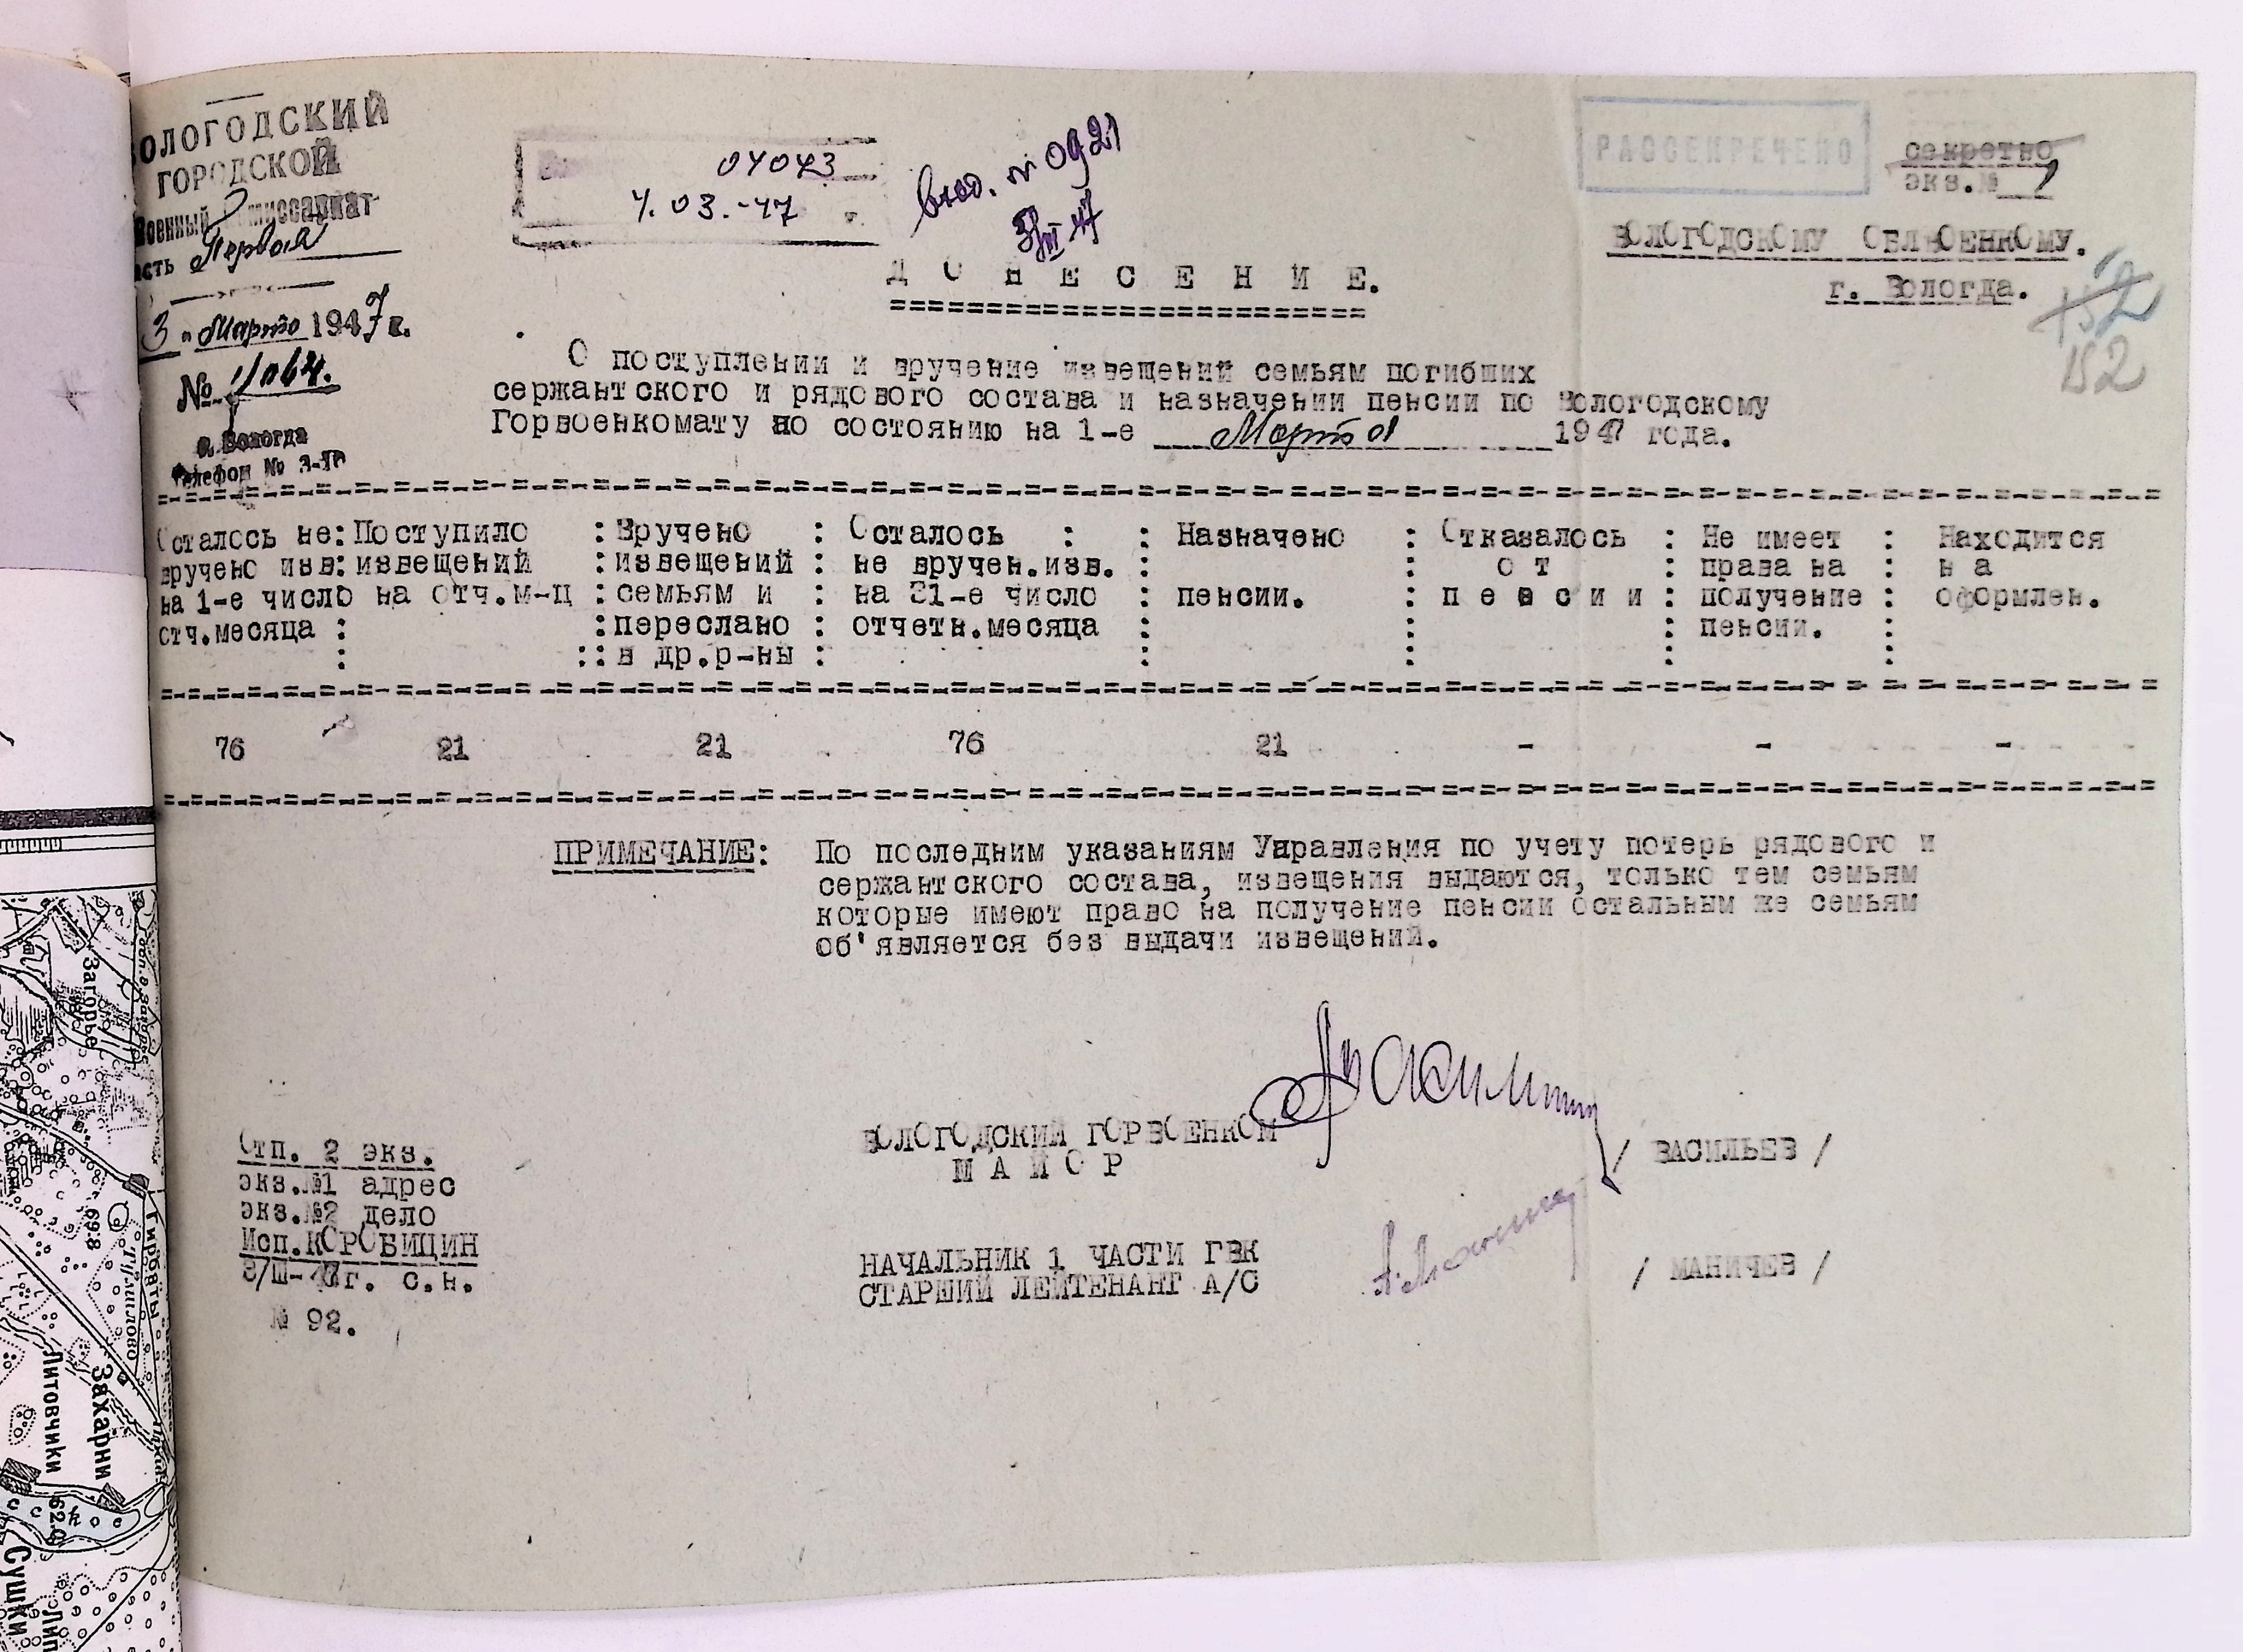 ВОЛОГОДСКИЙ
ГОРОДСКОЙ
Военный Комиссариат
часть Первая
3 " Марта 1947 г.
№ 1/064.
г. Вологда
Телефон № 3-
04043
4.03.-47
Вход. № 0921
5/III 47
РАССЕКРЕЧЕНО
секретно
экз.№ 1
ВОЛОГОДСКОМУ ОБЛВОЕНКОМУ.
г. Вологда.
152
Д О Н Е С Е Н И Е.
О поступлении и вручение извещений семьям погибших
сержантского и рядового состава и назначении пенсии по Вологодскому
Горвоенкомату по состоянию на 1-е Марта 1947 года.
Осталось не: Поступило : Вручено : Осталось : : Назначено : Отказалось : Не имеет : Находится
вручено изв: извещений извещений : не вручен.изв. : : о т : права на : н а
на 1-е число на отч.м-ц : семьям и : на 31-е число : пенсии. : п е н с и и : получение : оформлен.
отч.месяца : : переслано : отчетн.месяца : : : пенсии. :
: :: в др.р-ны : : : : :
76 21 21 76 21 - - -
ПРИМЕЧАНИЕ: По последним указаниям Управления по учету потерь рядового и
сержантского состава, извещения выдаются, только тем семьям
которые имеют право на получение пенсии остальным же семьям
об'является без выдачи извещений.
ВОЛОГОДСКИЙ ГОРВОЕНКОМ
М А Й О Р / ВАСИЛЬЕВ /
НАЧАЛЬНИК 1 ЧАСТИ ГВК
СТАРШИЙ ЛЕЙТЕНАНТ А/С / МАНИЧЕВ /
Отп. 2 экз.
экз.№1 адрес
экз.№2 дело
Исп.КОРОБИЦИН
3/Ш-47г. с.н.
№ 92.
Загорье
69.8
Гировты
Тумилово
Литовчики
Захарни
62.0
Сушки